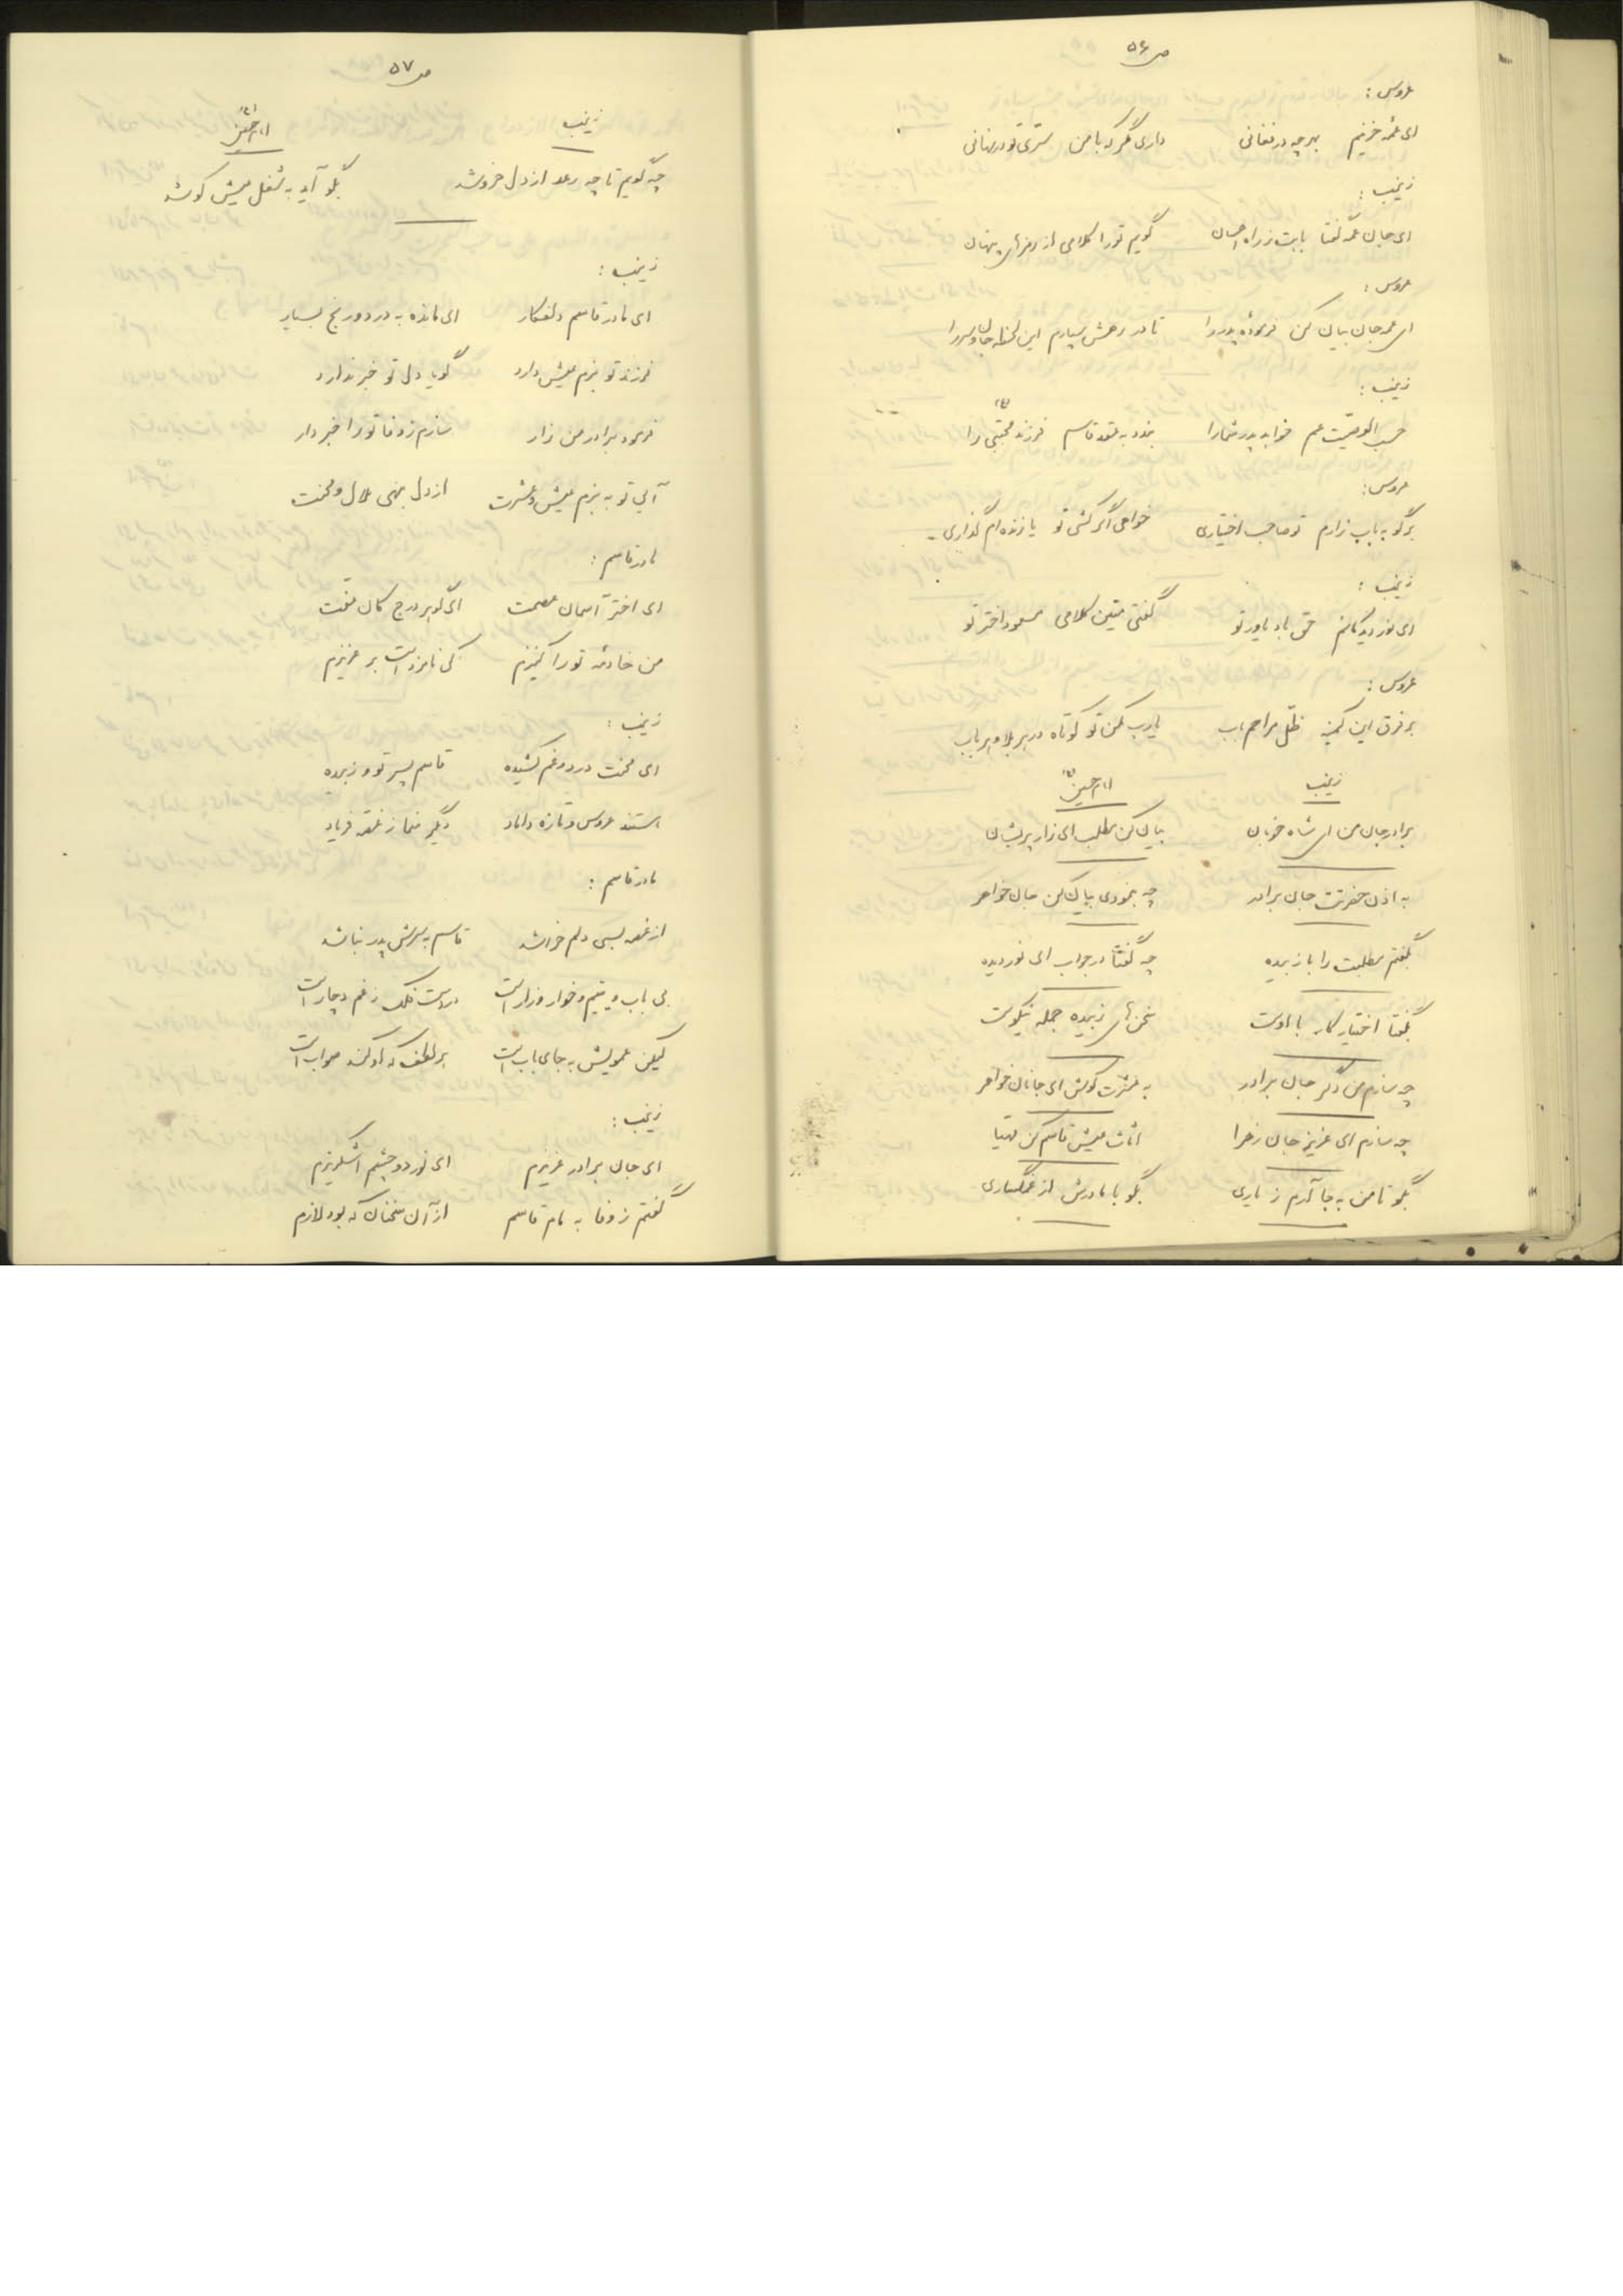 ص ۵۶
عروس :
ای عمّه حزینم بهر چه در فغانی داری مگر که با من سّری تو در نهانی
زینب :
ای جان عمّه گفتا بابت ز راه احسان گویم تو را کلامی از رمزهای پنهان
عروس :
ای عمه جان بیان کن فرمودهٔ پدر را تا در رهش سپارم این لحظه جان و سر را
زینب :
حسب الوصیّت عم خواهد پدر شما را بندد به عقد قاسم فرزند مجتبی را
عروس :
برگو به باب زارم تو صاحب اختیاری خواهی اگر کشی تو یا زنده ام گذاری
زینب :
ای نور دیدگانم حق باد یاور تو گفتی متین کلامی مسعود اختر تو
عروس :
بر فرق این کمینه ظلّ مراحم باب یارب مکن تو کوتاه در هر بلا و هر باب
زینب امام حسین ع
برادر جان من ای شاه خوبان بیان کن مطلب ای زار پریشان
به اذن حضرتت جان برادر چه بنمودی بیان کن جان خواهر
بگفتم مطلبت را با زبیده چه گفتا در جواب ای نور دیده
بگفتا اختیار کار با اوست سخن های زبیده جمله نیکوست
چه سازم من دگر جان برادر به عشرت کوش ای جانان خواهر
چه سازم ای عزیز جان زهرا اثاث عیش قاسم کن مهیا
بگو تا من به جا آرم ز یاری بگو با مادرش از غمگساری
ص ۵۷
زینب امام حسین ع
چه گویم تا چه رعد از دل خروشد بگو آید به شغل عیش کوشد
زینب :
ای مادر قاسم دلفکار ای مانده به درد و رنج بسیار
فرزند تو بزم عیش دارد گویا دل تو خبر ندارد
فرمود برادر من زار سازم ز وفا تو را خبردار
آئی تو به بزم عیش و عشرت از دل بنهی ملال و محنت
مادر قاسم :
ای اختر آسمان عصمت ای گوهر درج کان عفّت
من خادمه تو را کنیزم کی نامزد است بر عزیزم
زینب :
ای محنت درد و غم کشیده قاسم پسر تو و زبیده
استند عروس و تازه داماد دیگر منما ز غصّه فریاد
مادر قاسم :
از غصه بسی دلم خراشد قاسم به سرش پدر نباشد
بی باب و یتیم و خوار و زار است در دست فلک ز غم دچار است
لیکن عمویش به جای باب است هر لطف که او کند صواب است
زینب :
ای جان برادر عزیزم ای نور دو چشم اشکریزم
گفتم ز وفا به مام قاسم از آن سخنان که بود لازم